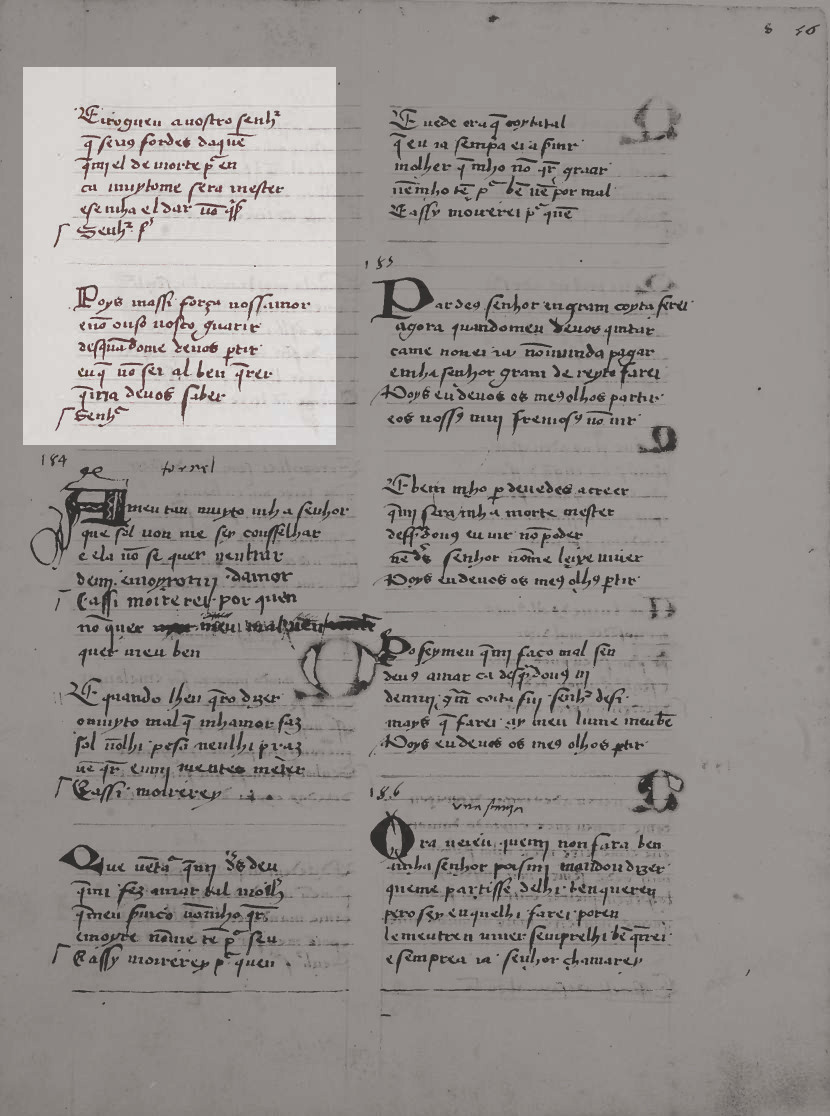 8 56
E irogueu a uostro senhᵃ
q̄ seiaꝯ fordes daquē
q̄mj el de morte p̄ en
ca muytome sera mester
ese mha el dar nō q̄
Senhᵃ
Poys massi força uossamor
enō ouso uosco guarir
desquādome deuos ꝑtir
euq̄ nō sei al ben q̄rer
deuos saber
Senhᵃ
184
tornel
A meu tan muyto mha senhor
que sol non me sey consselhar
e ela nō se quer nenbrar
demj emoyromj damor
E assi moirerey por quen
nō quer meu mal quen
quer meu ben
E quando lheu q̄ro dizer
o muyto mal q̄ mhamor faz
sol nōlhi pesa neulhi praz
nē q̄r emj mentes meter
E assi moirerey
Que uētaᵃ q̄mj dꝰs deu
q̄mj fez amar tal molhꝰ
q̄meu ẜuiço nōmho q̄r
emoyro nōme tē pᵃ seu
E assy moirerey pᵃ quen
E uede ora q̄ coytatal
q̄ eu ia sempᵃ ei a ẜuir
molher q̄ mho nō q̄r graar
nēmho tē pᵃ bē nē por mal
E assy moirerei pᵃ quē
185
Par deꝯ senhor en gram coyta serei
agora quandomeu deuos quitar
ca me non ei ia nō mūda pagar
emha senhor gram dereyto farei
Poys eu deuos os meꝯ olhos partir
e os uossꝯ mui fremosꝯ nō uir
E bem mho ꝑ deuedes a creer
q̄mj sera mha morte mester
dess douꝯ eu uir nō poder
nē dꝰs senhor nōme leixe uiuer
Poys eu deuos os meꝯ olhꝯ ꝑtir
Po seymeu q̄mj faço mal sen
deuꝯ amar ca desq̄ douꝯ uj
demuj gm̄ coita fuj senhᵃ desi
mays q̄ farei ay meu lume meu bē
Poys eu deuos os meꝯ olhos ꝑtir
186
Ora ueieu quemj non fara ben
mha senhor poismj mandou dizer
queme partisse delhi ben querer
pero sey euquelhi farei poren
lementren uiuer senprelhi bē q̄rrei
e sempre a ia senhor chamarey